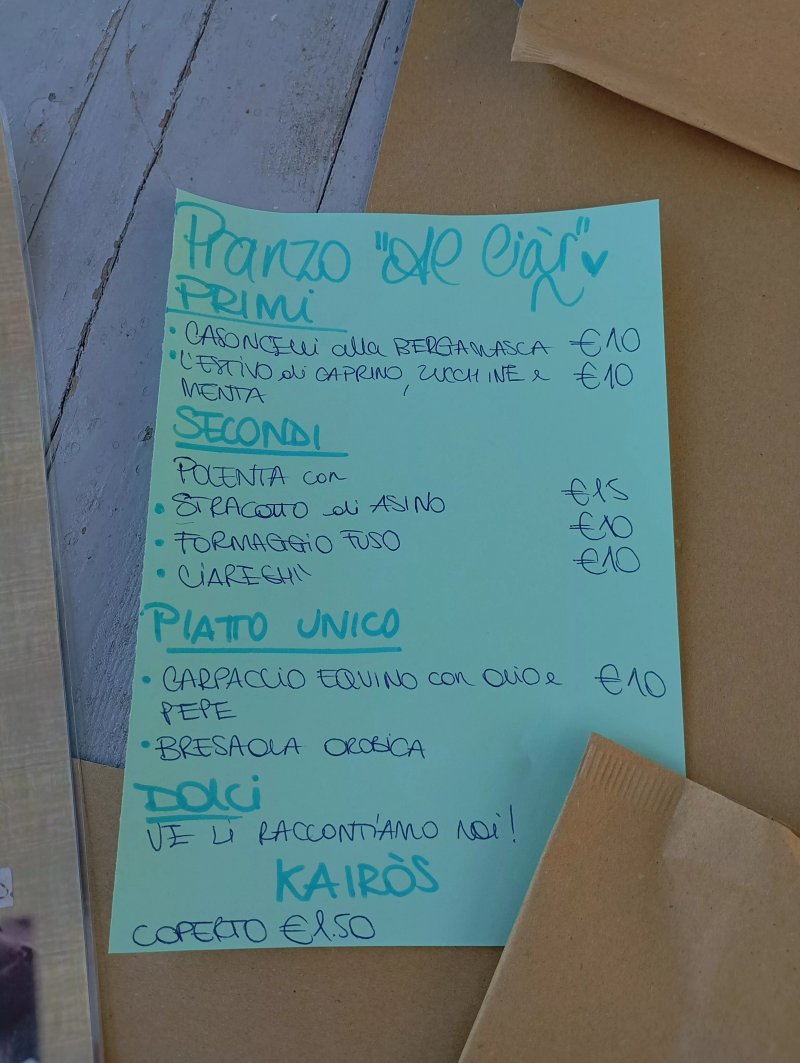 Pranzo "Al Ciàr"
PRIMI
• CASONCELLI alla BERGAMASCA €10
• L'ESTIVO di CAPRINO, ZUCCHINE e €10
MENTA
SECONDI
POLENTA con
• STRACOTTO di ASINO €15
• FORMAGGIO FUSO €10
• CIAREGHI' €10
PIATTO UNICO
• CARPACCIO EQUINO con OLIO e €10
PEPE
• BRESAOLA OROBICA
DOLCI
VE LI RACCONTIAMO NOI!
KAIRÒS
COPERTO €1.50